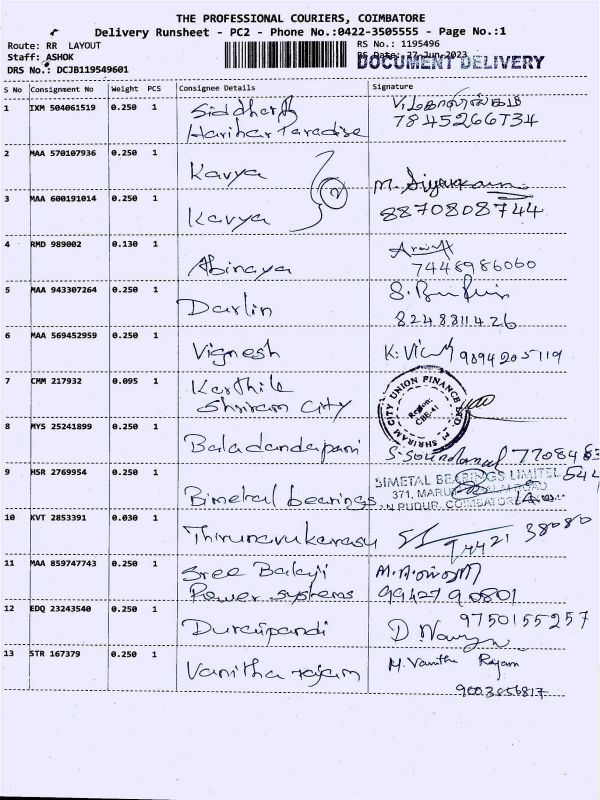 THE PROFESSIONAL COURIERS, COIMBATORE
Delivery Runsheet - PC2 - Phone No.:0422-3505555 - Page No.:1
Route: RR LAYOUT
RS No.: 1195496
Staff: ASHOK
RS Date: 27-Jun-2023
DOCUMENT DELIVERY
DRS No.: DCJB119549601
S No Consignment No Weight PCS Consignee Details Signature
1 IXM 504061519 0.250 1 Siddharth
Harihar Paradise
7845266734
2 MAA 570107936 0.250 1 Kavya
2
3 MAA 600191014 0.250 1 Kavya
8870808744
4 RMD 989002 0.130 1 Abinaya
7448986060
5 MAA 943307264 0.250 1 Darlin
8248811426
6 MAA 569452959 0.250 1 Vignesh K. 9894205119
7 CMM 217932 0.095 1 Karthik
Shriram City
SHRIRAM CITY UNION FINANCE LTD.
Region:
CBE-41
8 MYS 25241899 0.250 1 Baladandapani
9 HSR 2769954 0.250 1 Bimetal bearings
BIMETAL BEARINGS LIMITED
371, ROAD
PUDUR, COIMBATORE
10 KVT 2853391 0.030 1 Thirunavukarasu
38080
11 MAA 859747743 0.250 1 Sree Balaji
Power systems
9942790801
12 EDQ 23243540 0.250 1 Duraipandi
9750155257
13 STR 167379 0.250 1 Vanitha rajam
M. Vanitha Rajam
9003656817